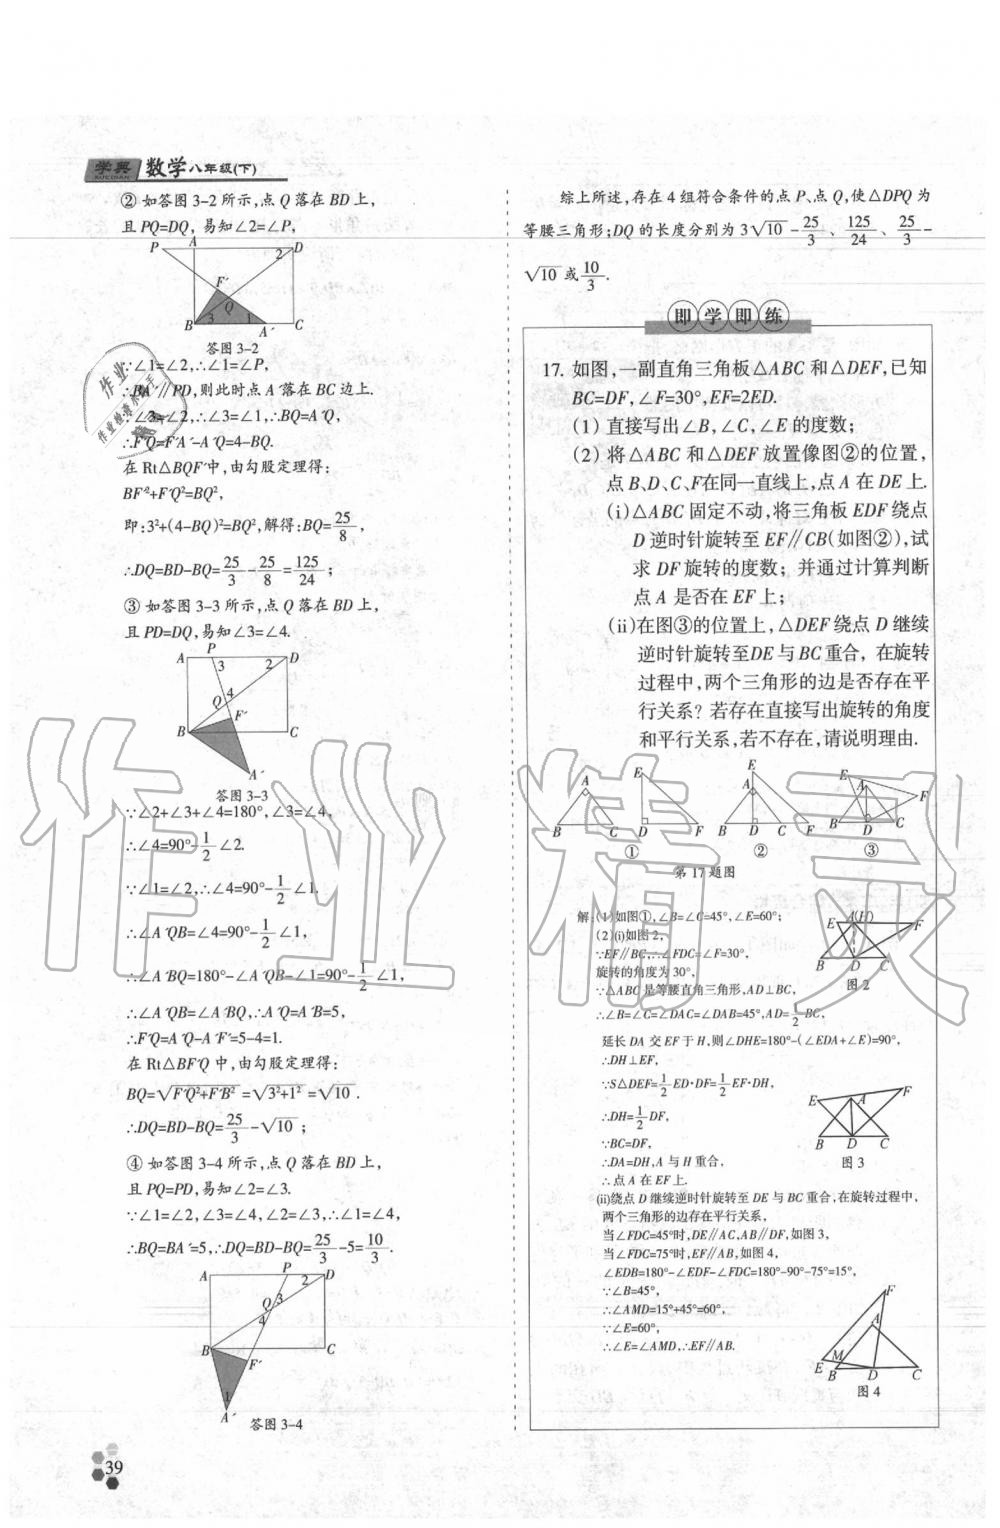 学典 数学八年级(下)
XUEDIAN
② 如答图 3-2 所示,点 Q 落在 BD 上,
且 PQ=DQ, 易知∠2=∠P,
P A D 2 F´ Q B 3 1 A´ C
答图 3-2
∵∠1=∠2,∴∠1=∠P,
∴BA´∥PD,则此时点 A´落在 BC 边上.
∵∠3=∠2,∴∠3=∠1,∴BQ=A´Q,
∴F´Q=F´A´-A´Q=4-BQ.
在 Rt△BQF´中,由勾股定理得:
BF´²+F´Q²=BQ²,
即:3²+(4-BQ)²=BQ²,解得:BQ=25/8,
∴DQ=BD-BQ=25/3-25/8=125/24;
③ 如答图 3-3 所示,点 Q 落在 BD 上,
且 PD=DQ,易知∠3=∠4.
A P D 3 2 Q 4 F´ B C A´
答图 3-3
∵∠2+∠3+∠4=180°,∠3=∠4,
∴∠4=90°-1/2∠2.
∵∠1=∠2,∴∠4=90°-1/2∠1.
∴∠A´QB=∠4=90°-1/2∠1,
∴∠A´BQ=180°-∠A´QB-∠1=90°-1/2∠1,
∴∠A´QB=∠A´BQ,∴A´Q=A´B=5,
∴F´Q=A´Q-A´F´=5-4=1.
在 Rt△BF´Q 中,由勾股定理得:
BQ=√(F´Q²+F´B²)=√(3²+1²)=√10.
∴DQ=BD-BQ=25/3-√10;
④ 如答图 3-4 所示,点 Q 落在 BD 上,
且 PQ=PD,易知∠2=∠3.
∵∠1=∠2,∠3=∠4,∠2=∠3,∴∠1=∠4,
∴BQ=BA´=5,∴DQ=BD-BQ=25/3-5=10/3.
A P D 2 Q 3 4 B C F´ 1 A´
答图 3-4
39
综上所述,存在 4 组符合条件的点 P、点 Q,使△DPQ 为
等腰三角形;DQ 的长度分别为 3√10-25/3、125/24、25/3-
√10 或10/3.
即学即练
17. 如图,一副直角三角板△ABC 和△DEF,已知
BC=DF,∠F=30°,EF=2ED.
(1) 直接写出∠B,∠C,∠E 的度数;
(2) 将△ABC 和△DEF 放置像图②的位置,
点 B、D、C、F在同一直线上,点 A 在 DE 上.
(i)△ABC 固定不动,将三角板 EDF 绕点
D 逆时针旋转至 EF∥CB(如图②),试
求 DF 旋转的度数; 并通过计算判断
点 A 是否在 EF 上;
(ii)在图③的位置上,△DEF 绕点 D 继续
逆时针旋转至DE 与 BC 重合, 在旋转
过程中,两个三角形的边是否存在平
行关系? 若存在直接写出旋转的角度
和平行关系,若不存在,请说明理由.
A B C E D F E A B D C F E A F B D C
① ② ③
第 17 题图
解:(1)如图①,∠B=∠C=45°,∠E=60°;
(2)(i)如图 2,
∵EF∥BC,∴∠FDC=∠F=30°,
旋转的角度为 30°,
∵△ABC 是等腰直角三角形,AD⊥BC,
E A(H) F B D C
图 2
∴∠B=∠C=∠DAC=∠DAB=45°,AD=1/2BC,
延长 DA 交 EF 于 H,则∠DHE=180°-(∠EDA+∠E)=90°,
∴DH⊥EF,
∵S△DEF=1/2ED·DF=1/2EF·DH,
∴DH=1/2DF,
∵BC=DF,
∴DA=DH,A 与 H 重合,
∴点 A 在 EF 上.
E A F B D C
图 3
(ii)绕点 D 继续逆时针旋转至 DE 与 BC 重合,在旋转过程中,
两个三角形的边存在平行关系,
当∠FDC=45°时,DE∥AC,AB∥DF,如图 3,
当∠FDC=75°时,EF∥AB,如图 4,
∠EDB=180°-∠EDF-∠FDC=180°-90°-75°=15°,
∵∠B=45°,
∴∠AMD=15°+45°=60°,
∵∠E=60°,
∴∠E=∠AMD,∴EF∥AB.
F A M E B D C
图 4
作业精灵